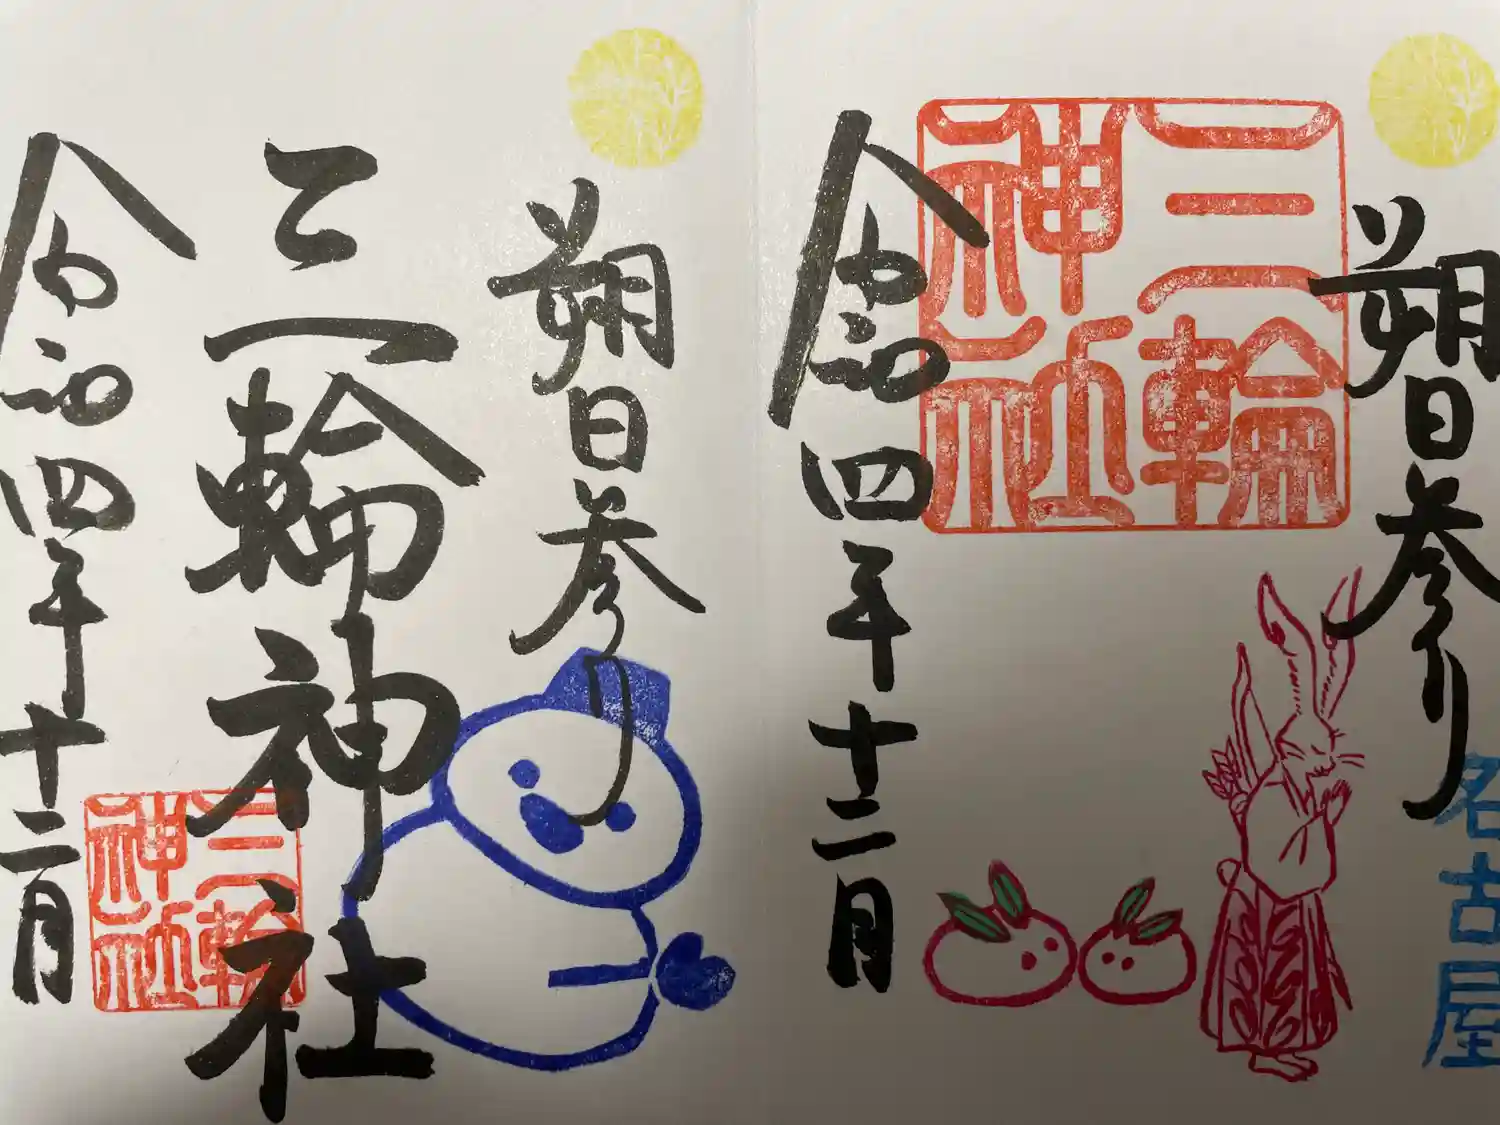 名古屋
朔日参り
三輪神社
令和四年十二月
朔日参り
三輪神社
三輪神社
令和四年十二月